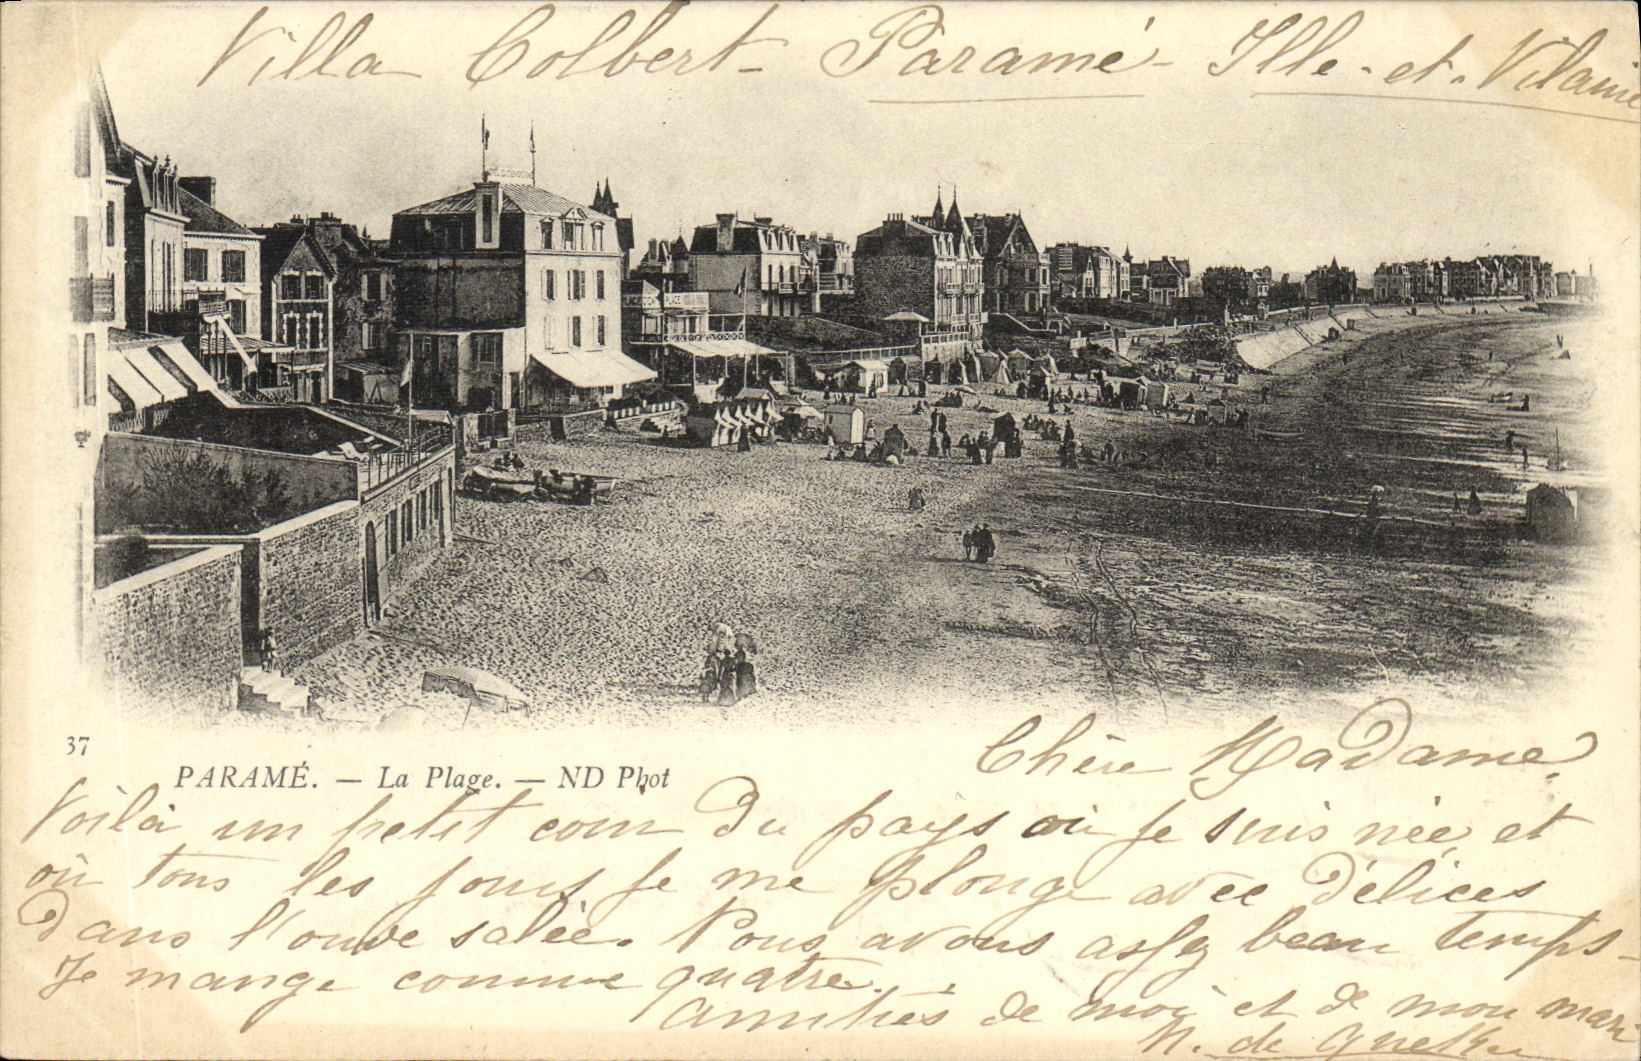 Villa Colbert - Paramé - Ille-et-Vilaine
37
PARAMÉ. — La Plage. — ND Phot
Chère Madame,
Voilà un petit coin du pays où je suis née, et
où tous les jours je me plonge avec délices
dans l'onde salée. Nous avons assez beau temps -
Je mange comme quatre.
Amitiés de moi et de mon mari